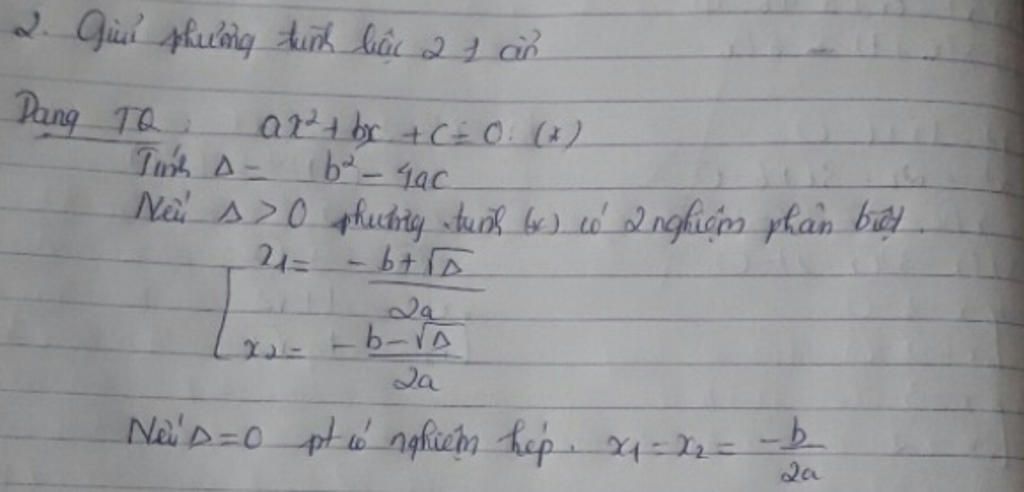 2. Giải phương trình bậc 2 1 ẩn
Dạng TQ: ax² + bx + c = 0. (*)
Tính Δ = b² - 4ac
Nếu Δ > 0 phương trình (*) có 2 nghiệm phân biệt.
x₁ = -b + √Δ / 2a
x₂ = -b - √Δ / 2a
Nếu Δ = 0 pt có nghiệm kép. x₁ = x₂ = -b / 2a